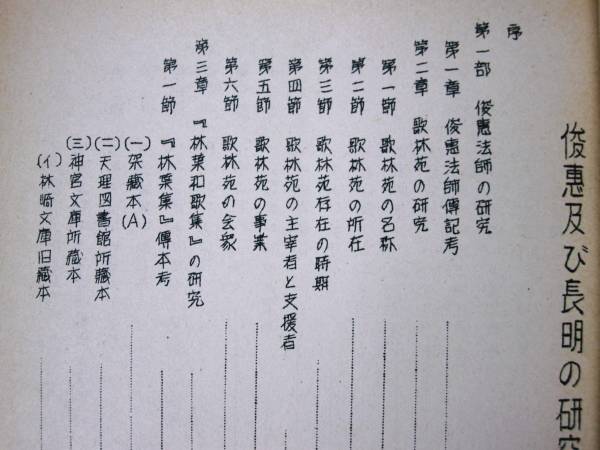 俊惠及び長明の研究
序
第一部 俊惠法師の研究
第一章 俊惠法師傳記考
第二章 歌林苑の研究
第一節 歌林苑の名称
第二節 歌林苑の所在
第三節 歌林苑存在の時期
第四節 歌林苑の主宰者と支援者
第五節 歌林苑の事業
第六節 歌林苑の会衆
第三章 『林葉和歌集』の研究
第一節 『林葉集』傳本考
(一)架藏本(A)
(二)天理図書館所藏本
(三)神宮文庫所藏本
(イ)林崎文庫旧藏本